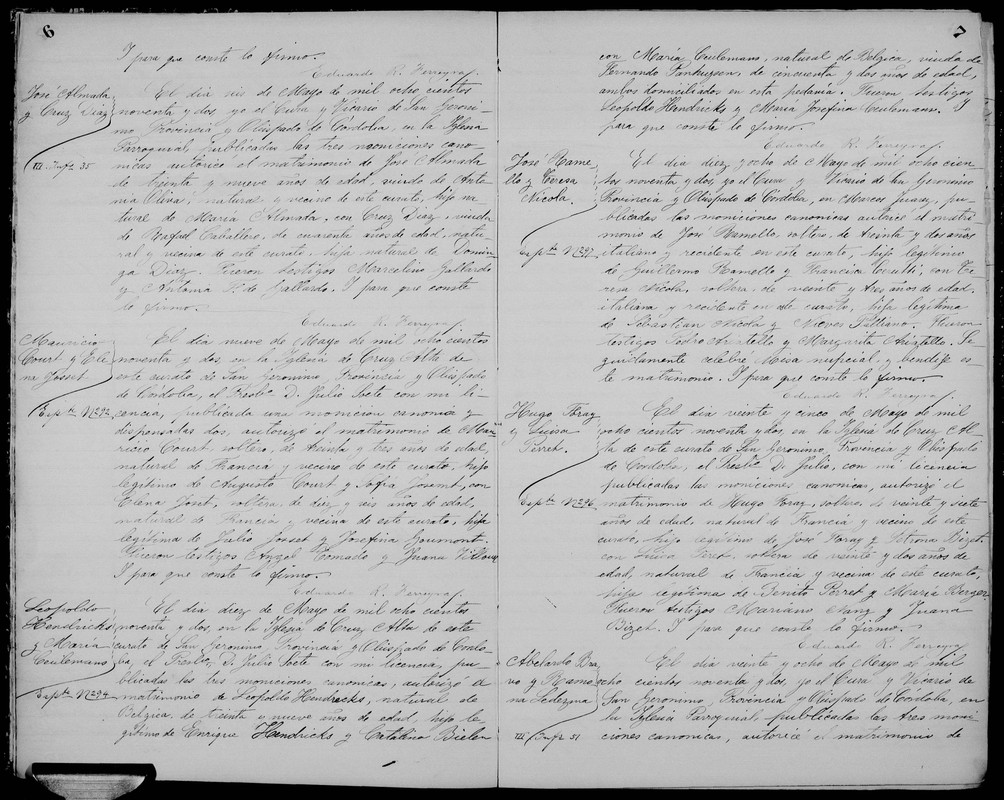 6
Y para que conste lo firmo.
Eduardo R. Ferreyra
José Almada
y Cruz Diaz
III. Inf. 35
El dia seis de Mayo de mil ocho cientos
noventa y dos, yo el Cura y Vicario de San Geroni-
mo Provincia y Obispado de Córdoba, en la Iglesia
Parroquial, publicadas las tres moniciones cano-
nicas autoricé el matrimonio de José Almada
de treinta y nueve años de edad, viudo de Anto-
nia Oliva, natural y vecino de este curato, hijo na-
tural de Maria Almada, con Cruz Diaz, viuda
de Rafael Caballero, de cuarenta años de edad, natu-
ral y vecina de este curato, hija natural de Domin-
ga Diaz. Fueron testigos Marcelino Gallardo
y Antonia F. de Gallardo. Y para que conste
lo firmo.
Eduardo R. Ferreyra
Mauricio
Court y Ele-
na Josset
Espte. Nº 292
El dia nueve de Mayo de mil ocho cientos
noventa y dos, en la Iglesia de Cruz Alta de
este curato de San Geronimo, Provincia y Obispado
de Córdoba, el Presbo. D. Julio Soete con mi li-
cencia, publicada una monicion canonica y
dispensadas dos, autorizó el matrimonio de Mau-
ricio Court, soltero, de treinta y tres años de edad,
natural de Francia y vecino de este curato, hijo
legitimo de Augusto Court y Sofia, con
Elena Joset, soltera, de diez y seis años de edad,
natural de Francia y vecina de este curato, hija
legitima de Julio Josset y Josefina Goumont.
Fueron testigos Angel y Juana
Y para que conste lo firmo.
Eduardo R. Ferreyra
Leopoldo
Hendricks
y Maria
Ceulemans
Espte. Nº 294
El dia diez de Mayo de mil ocho cientos
noventa y dos, en la Iglesia de Cruz Alta de este
curato de San Geronimo, Provincia y Obispado de Cordo-
ba, el Presbo. D. Julio Soete con mi licencia, pu-
blicadas las tres moniciones canonicas, autorizó el
matrimonio de Leopoldo Hendricks, natural de
Belgica, de treinta y nueve años de edad, hijo le-
gitimo de Enrique Hendricks y Catalina Bielen
7
con Maria Ceulemans, natural de Belgica, viuda de
Fernando, de cincuenta y dos años de edad,
ambos domiciliados en esta pedania. Fueron testigos
Leopoldo Hendricks y Maria Josefina Ceulemans. Y
para que conste lo firmo.
Eduardo R. Ferreyra
José Rame-
llo y Teresa
Nicola.
Espte. Nº 297
El dia diez y ocho de Mayo de mil ocho cien-
tos noventa y dos, yo el Cura y Vicario de San Geronimo
Provincia y Obispado de Córdoba, en Marcos Juarez, pu-
blicadas las moniciones canonicas autoricé el matri-
monio de José Ramello, soltero, de treinta y dos años
italiano y recidente en este curato, hijo legitimo
de Guillermo Ramello y Francisca Cerutti, con Te-
resa Nicola, soltera, de veinte y tres años de edad,
italiana y recidente en este curato, hija legitima
de Sebastian Nicola y Nieves. Fueron
testigos Pedro Aristallo y Margarita Aristallo. Se-
guidamente celebré Misa nupcial, y bendije es-
te matrimonio. Y para que conste lo firmo.
Eduardo R. Ferreyra
Hugo Foray
y Luisa
Perret.
Espte. Nº 296
El dia veinte y cinco de Mayo de mil
ocho cientos noventa y dos, en la Iglesia de Cruz Al-
ta de este curato de San Geronimo, Provincia y Obispado
de Córdoba, el Presbo. D. Julio, con mi licencia
publicadas las moniciones canonicas, autorizó el
matrimonio de Hugo Foray, soltero, de veinte y siete
años de edad, natural de Francia y vecino de este
curato, hijo legitimo de José Foray y Petrona Bizet
con Luisa Peret, soltera de veinte y dos años de
edad, natural de Francia y vecina de este curato,
hija legitima de Benito Perret y Maria Berger
Fueron testigos Mariano Sanz y Juana
Bizet. Y para que conste lo firmo.
Eduardo R. Ferreyra
Abelardo Bra-
vo y Ramo-
na Ledezma
III / Inf. 51
El dia veinte y ocho de Mayo de mil
ocho cientos noventa y dos, yo el Cura y Vicario de
San Geronimo, Provincia y Obispado de Córdoba, en
la Iglesia Parroquial, publicadas las tres moni-
ciones canonicas, autoricé el matrimonio de